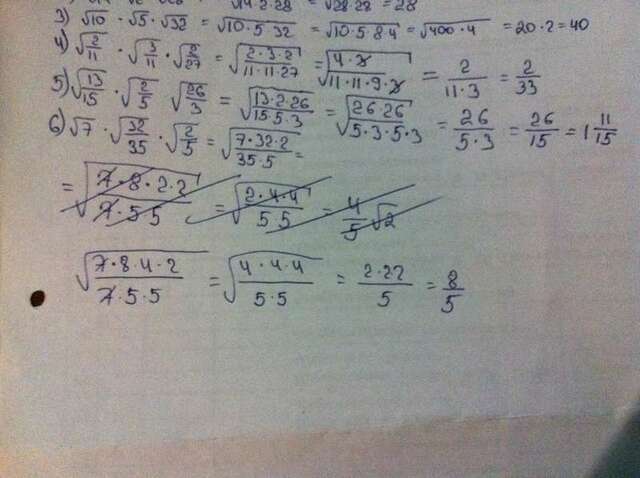 √14·2·28 = √28·28 = 28
3) √10 · √5 · √32 = √10·5·32 = √10·5·8·4 = √400·4 = 20·2=40
4) √2/11 · √3/11 · √2/27 = √2·3·2/11·11·27 = √4·3/11·11·9·3 = 2/11·3 = 2/33
5) √13/15 · √2/5 √26/3 = √13·2·26/15·5·3 = √26·26/5·3·5·3 = 26/5·3 = 26/15 = 1 11/15
6) √7 · √32/35 · √2/5 = √7·32·2/35·5 =
= √7·8·2·2/7·5 5 = √2·4·4/5·5 = 4/5 √2
√7·8·4·2/7·5·5 = √4·4·4/5·5 = 2·22/5 = 8/5